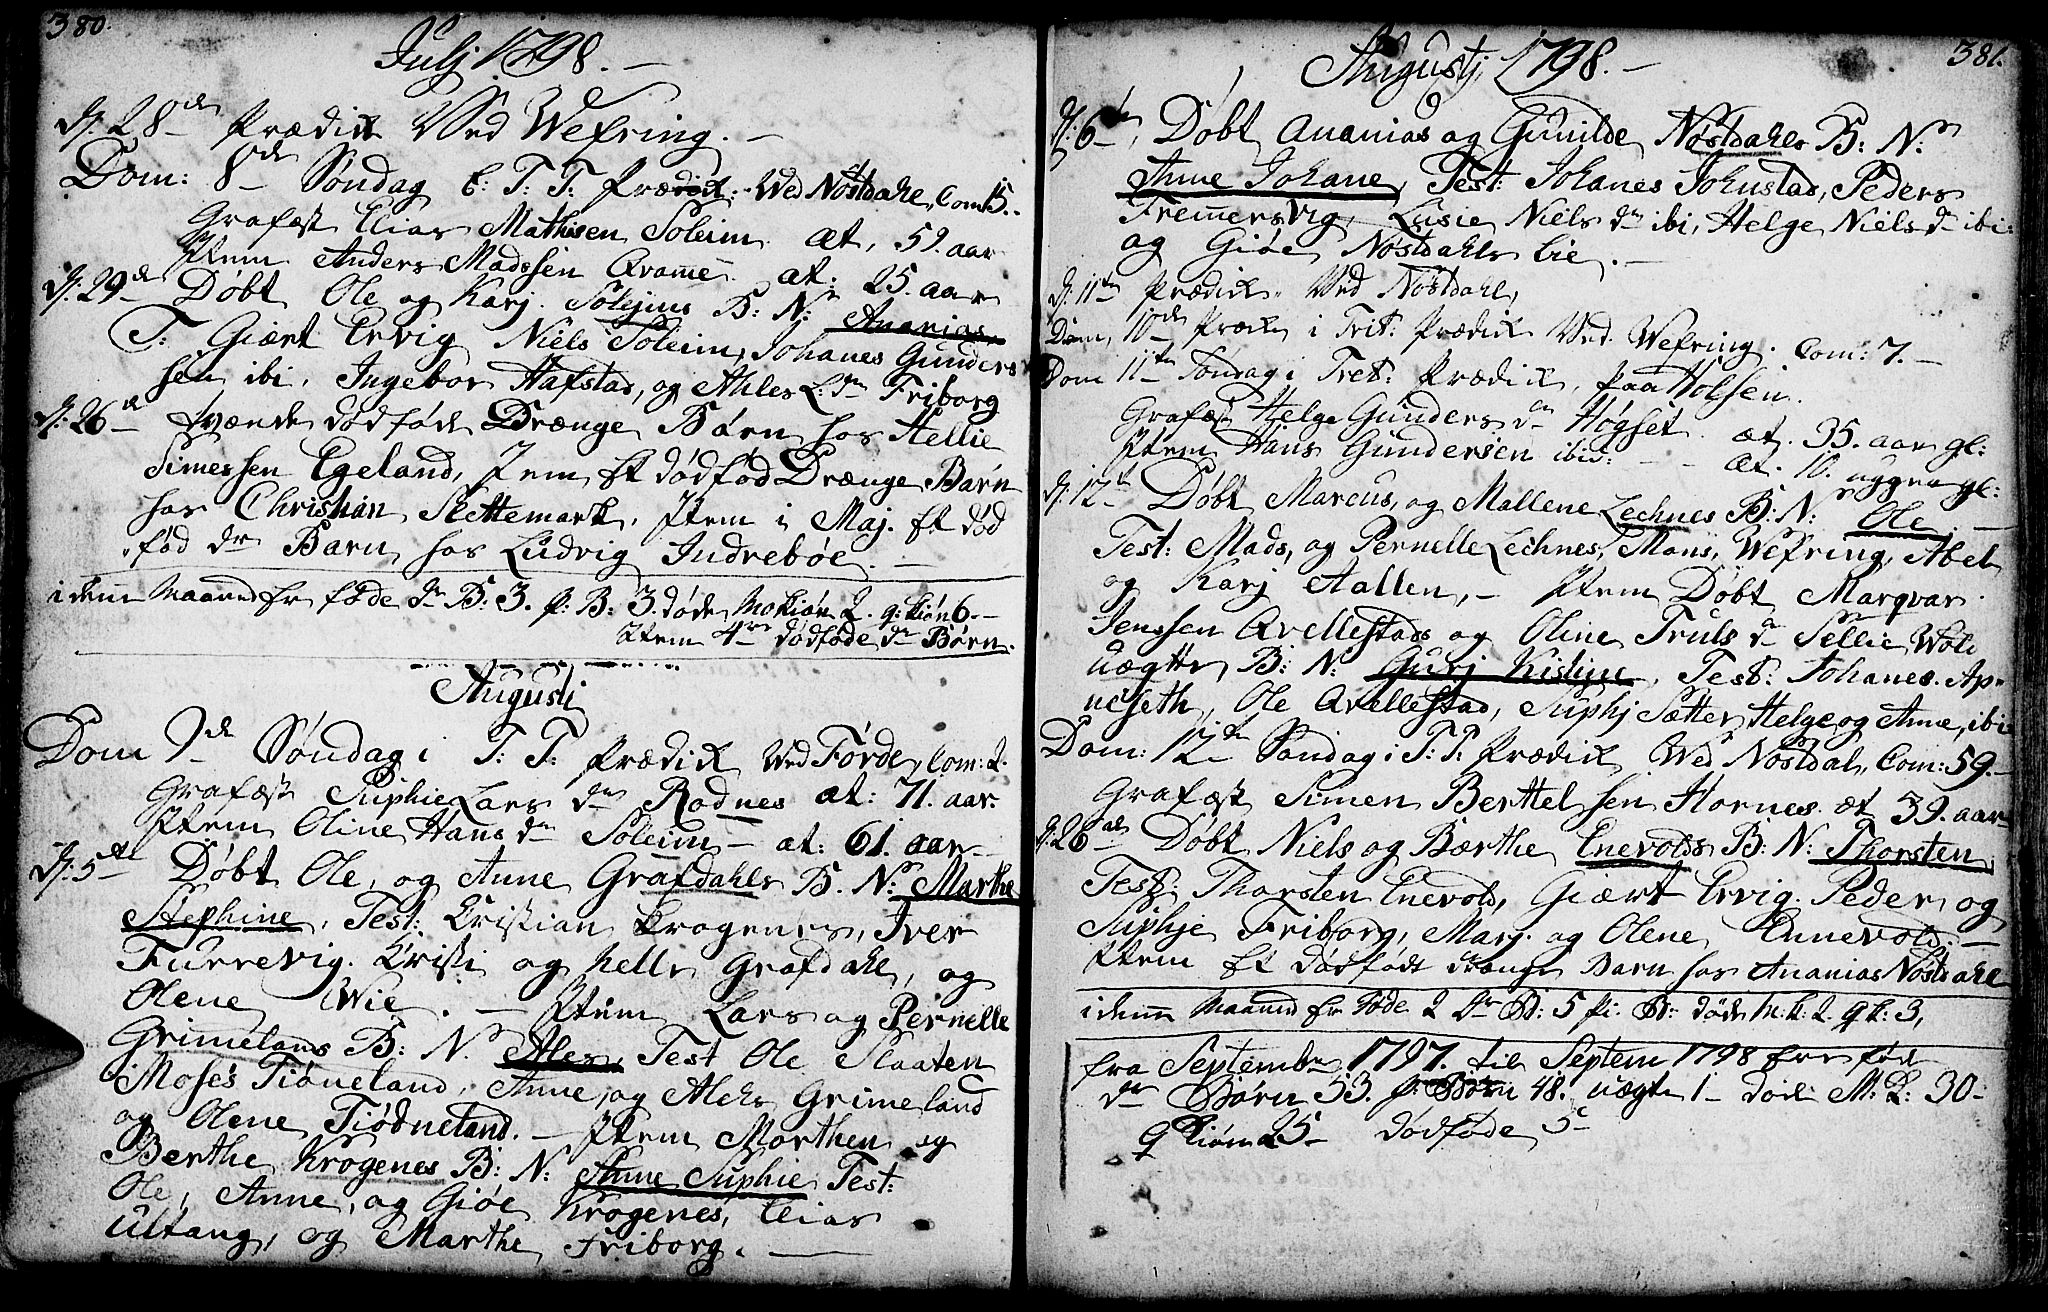 380.
Julj 1798. —
d. 28de Prædik Ved Wefring. —
Dom: 8de Søndag E: T: T: Prædik: Wed Nøstdahl, Com 15.
Grafæst Elias Mathisen Soleim æt, 59. aar
Item Anders Madssen Qvamme æt: 25. aar
d. 29de Døbt Ole og Karj Solejms B: Nn Ananias
T: Giært Ervig Niels Soleim, Johanes Gunders
sen ibi, Ingebor Hafstad, og Ahles L: dn Friborg
d. 26de tvænde dødføde Drænge Børn hos Hellie
Simessen Egeland, Item Et dødfød Drænge Barn
hos Christian Slettemark, Item i Maj. Et død
fød dn Barn hos Ludvig Indrebøe. —
i denne Maaned er føde dn B: 3. p: B: 3. døde M kiøn 2. q: kiøn 6. —
Item 4re dødføde dn Børn.
Augusti
Dom 9de Søndag i T: T: Prædik Wed Førde, Com: 2.
Grafæst Siphie Lars dn Rodnes æt: 71. aar.
Item Oline Hans dn Soleim — æt: 61. aar
d. 5te Døbt Ole, og Anne Grafdahls B. Nn Marthe
Stephine, Test: Kristian Krogenes, Iver
Furrevig. Kristi og Helle Grafdahl, og
Olene Wie. — Item Lars og Pernelle
Grimelans B: N: Alex, Test Ole Slaaten
Moses Tiøneland, Anne, og Aleks Grimeland
og Olene Tiødneland. — Item Morthen og
Berthe Krogenes B: N: Anne Siphie Test:
Ole, Anne, og Giøe Krogenes, Elias
Ultang, og Marthe Friborg. —
381.
Augustj 1798. —
d: 6te, Døbt Ananias og Gunilde Nøstdahls B: Nn
Anne Johane, Test: Johanes Johnstad, Peders
Fremersvig, Lusie Niels dn ibi, Helge Niels dn ibi:
og Giøe Nøstdahls lie. —
d: 11te Prædik Ved Nøstdahl,
Dom, 10de Præd i Trit: Prædik Ved Wefring. Com: 7. —
Dom 11te Søndag i Tret: Prædik, paa Holsen.
Grafæst Helge Gunders dn Høgset æt. 35. aar gl:
Item Hans Gundersen ibid: — — æt. 10. uger gl:
d. 12te Døbt Marcus, og Mallene Lechnes B: N: Ole. —
Test: Mads, og Pernelle Lechnes, Mons, Wefring, Abel
og Karj Aallen, — Item Døbt Marqvar
Jenssen Qvellestads og Oline Truls dn Sellie Wold
uægtte B: N: Gurj Kistine, Test: Johanes. Ap
neseth, Ole Qvellestad, Siphj Sætter, Helge og Anne, ibi
Dom: 12te Søndag i T: T: Prædik Wed Nøstdal, Com: 59. —
Grafæst Simen Berthel sen Hornes æt 39. aar
d. 26de Døbt Niels og Bærthe Enevolds B: N: Thorsten,
Test: Thorsten Enevold, Giært Ervig. Peder, og
Siphje Friborg, Marj. og Olene Ennevold. —
Item Et dødfødt drænge Barn hos Ananias Nøstdahl
i denne Maaned er føde 2 dn B: 5 pi. B: døde M: k: 2. q k: 3,
fra Septembr 1797. til Septem 1798 ere fød
dn Børn 53. p: Børn 48. uægte 1 — døde M: k: 30 —
q kiøn 25 — dødføde 5